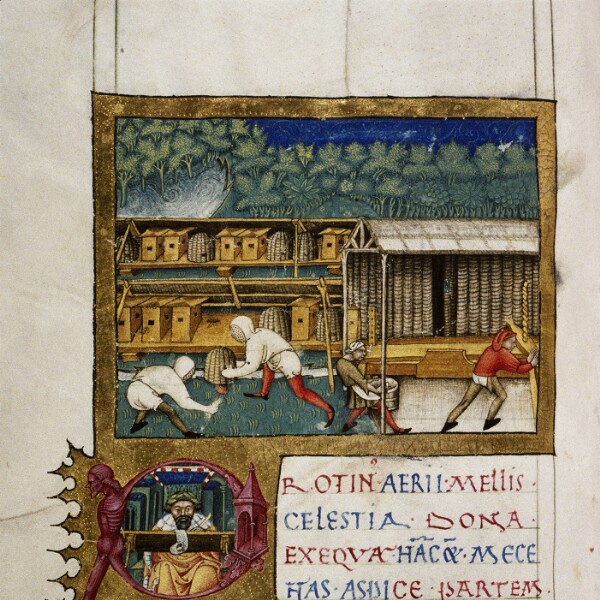 ROTINꝰ AERII·MELLIS·
CELESTIA· DONA·
EXEQVA HĀCQ̄· MECE
NAS·ASPICE·PARTEM·